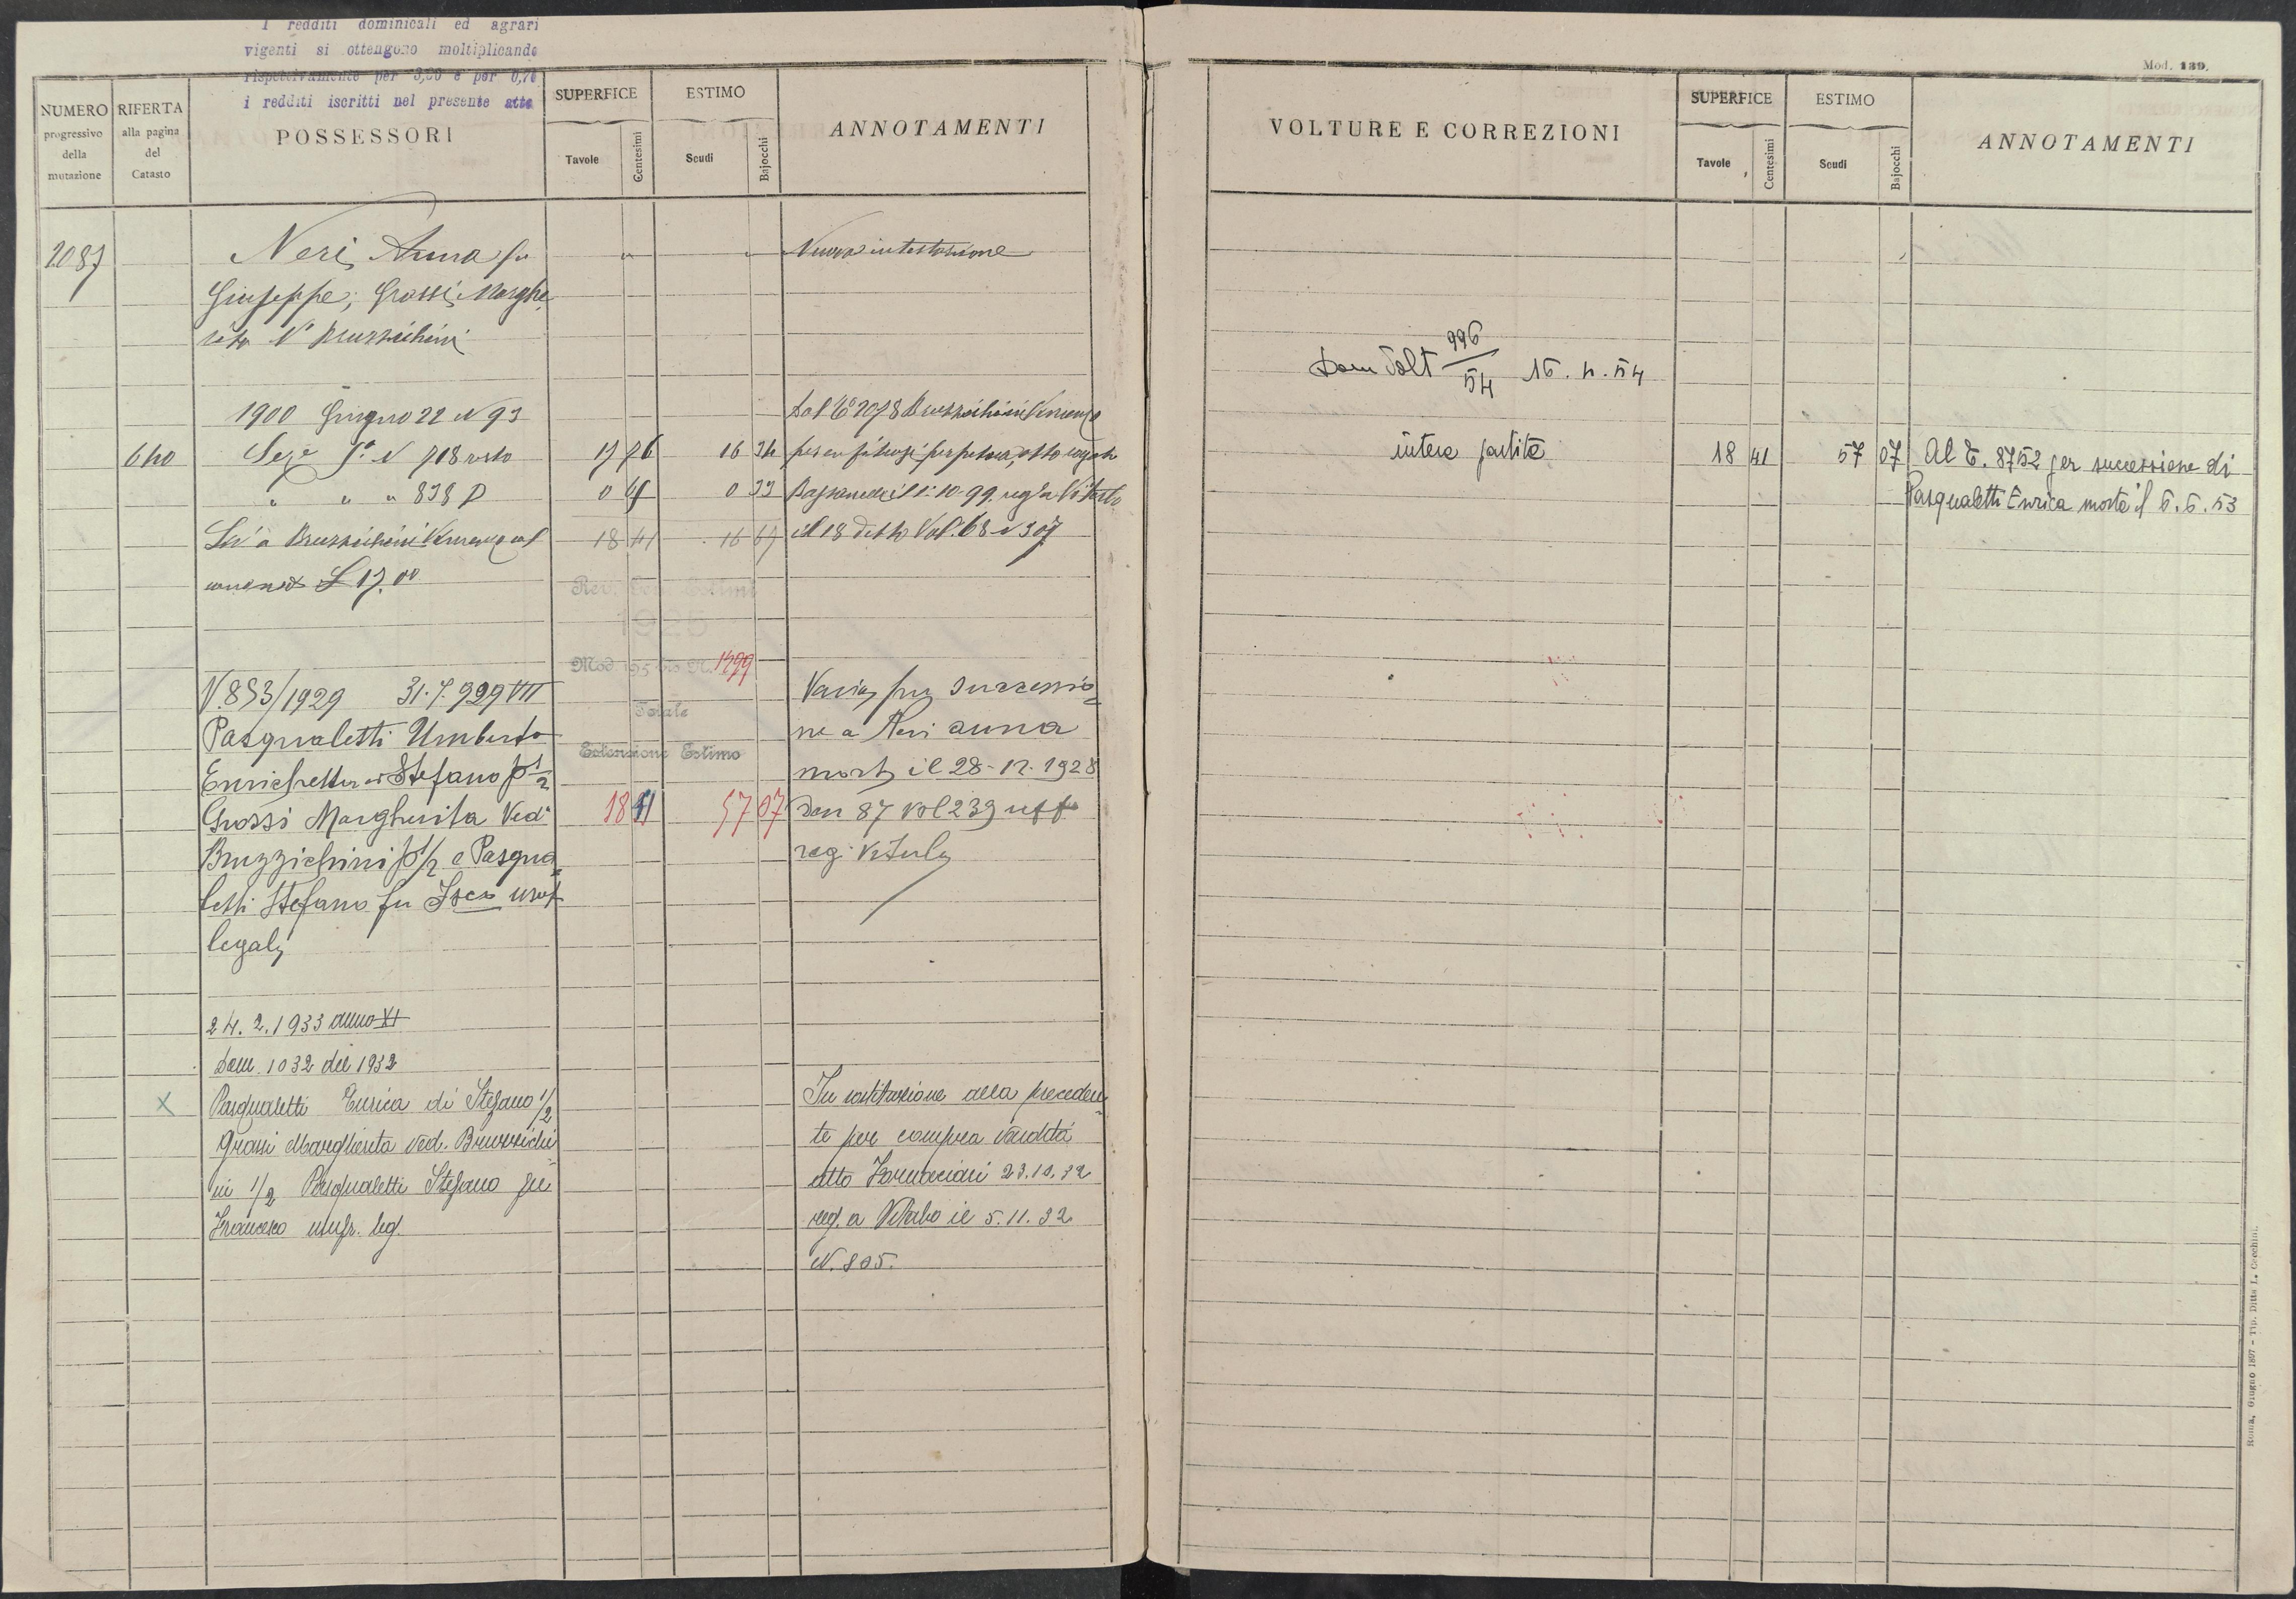 I redditi dominicali ed agrari
vigenti si ottengono moltiplicando
rispettivamente per 3,20 e per 0,70
i redditi iscritti nel presente atto
NUMERO progressivo della mutazione
RIFERTA alla pagina del Catasto
POSSESSORI
SUPERFICE
Tavole
Centesimi
ESTIMO
Scudi
Bajocchi
ANNOTAMENTI
2087
Neri Anna fu
Giuseppe; Grossi Marghe
rita Va Bruzzichini
Nuova intestazione
1900 Giugno 22 N 93
Dal Eo 2078 Bruzzichini Vincenzo
640 Seze Ia N 718 resto 17 76 16 34 per enfiteusi perpetua, atto
" " " 838 P 0 65 0 33 Bassanelli 1.10.99. reg a Viterbo
Liv a Bruzzichini Vincenzo 18 41 16 67 il 18 detto Vol. 68 N 307
L 17.00
Rev. Gen. Estimi
1925
Mod. 195 bis N. 1299
Totale
Estensione Estimo
18 41 57 07
N. 853/1929 31.7.929 VII
Pasqualetti Umberto
Enrichetta e Stefano p 1/2
Grossi Margherita Veda
Bruzzichini p 1/2 e Pasqua
letti Stefano fu Fsco usuf
legale
Varia per successio
ne a Neri Anna
morta il 28-12-1928
den 87 Vol 239 uff
reg. Viterbo
24.2.1933 anno XI
Dom. 1032 del 1932
X Pasqualetti Enrica di Stefano 1/2
Grossi Margherita ved. Bruzzichi
ni 1/2 Pasqualetti Stefano fu
Francesco usufr. leg.
In sostituzione alla preceden
te per compra vendita
atto Fornaciari 23.10.32
reg. a Viterbo il 5.11.32
N. 805.
Mod. 139.
VOLTURE E CORREZIONI
SUPERFICE
Tavole
Centesimi
ESTIMO
Scudi
Bajocchi
ANNOTAMENTI
Dom Volt 996/54 15.4.54
intera partita 18 41 57 07 Al E. 8752 per successione di
Pasqualetti Enrica morta il 6.6.53
Roma, Giugno 1897 - Tip. Ditta L. Cecchini.